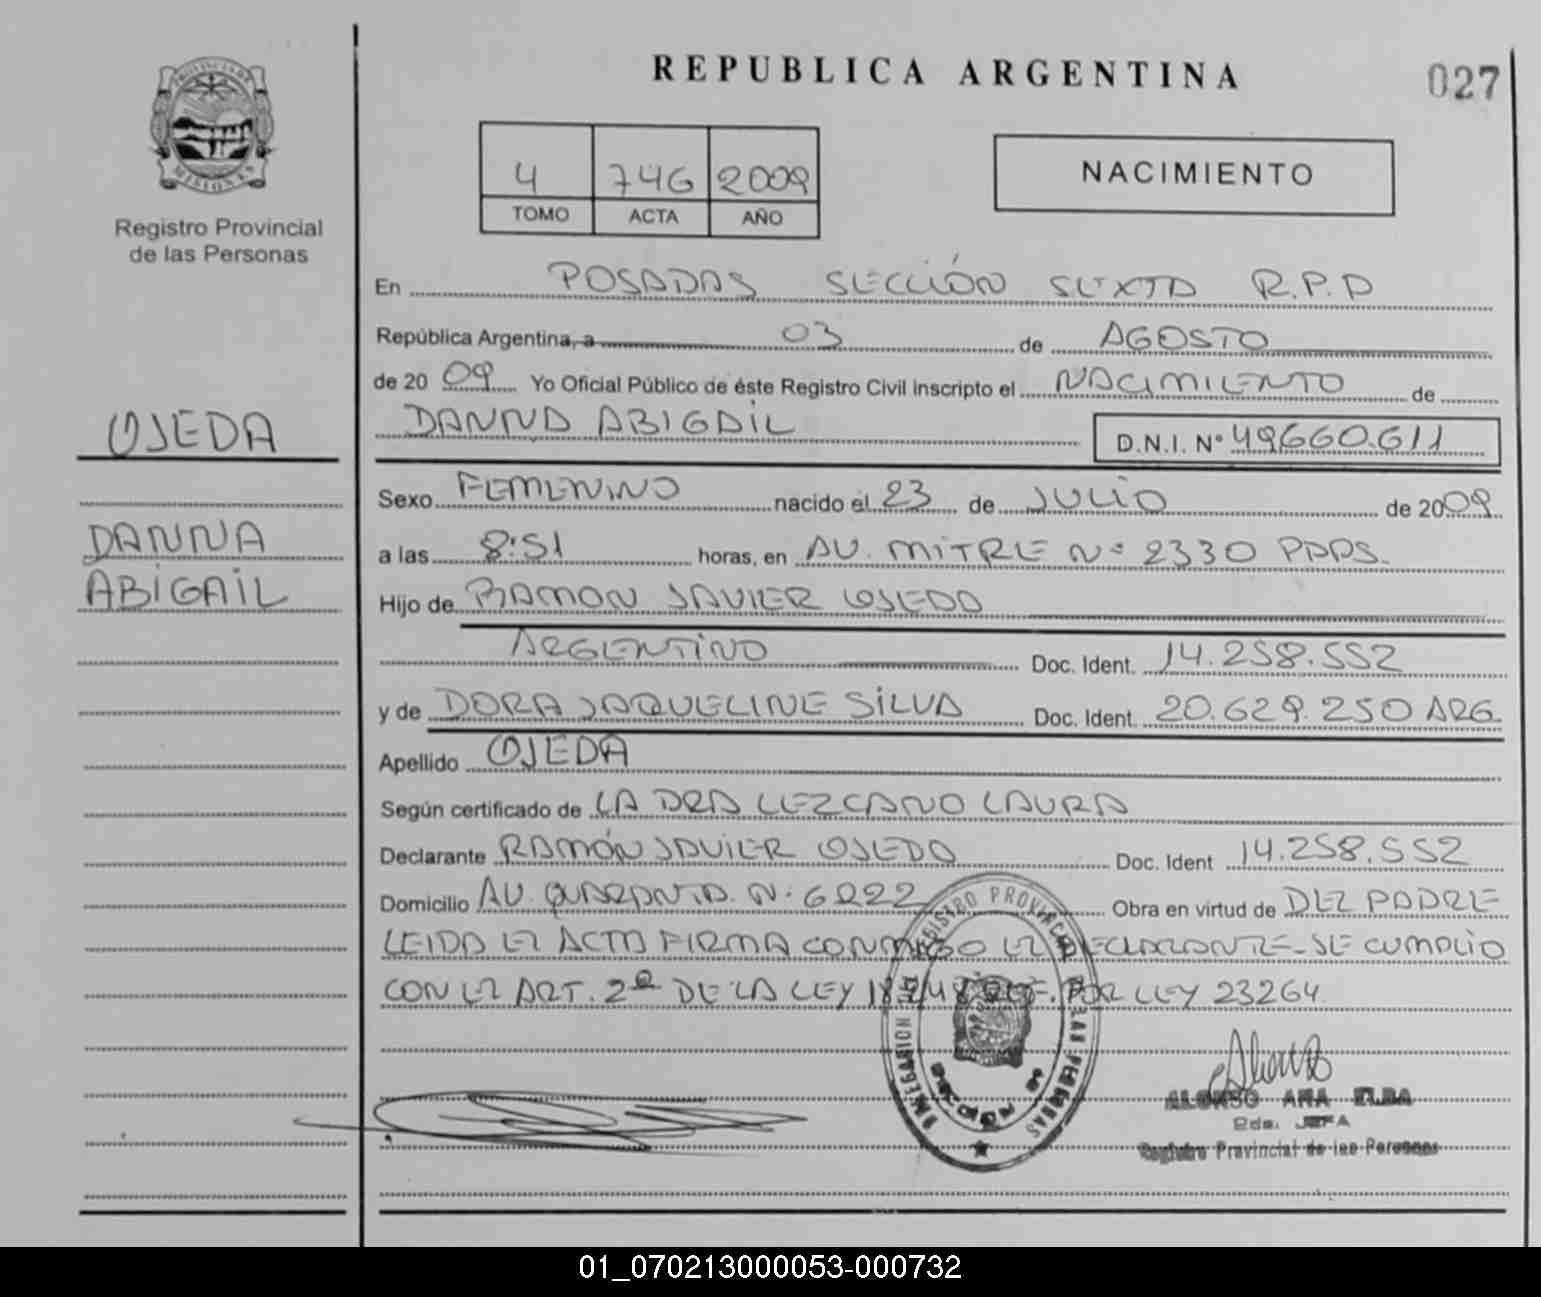 REPUBLICA ARGENTINA
027
PROVINCIA DE
MISIONES
Registro Provincial
de las Personas
4 746 2009
TOMO ACTA AÑO
NACIMIENTO
En POSADAS SECCIÓN SEXTA R.P.P
República Argentina, a 03 de AGOSTO
de 2009 Yo Oficial Público de éste Registro Civil inscripto el NACIMIENTO de
OJEDA
DANNA ABIGAIL D.N.I. N° 49660.611
Sexo FEMENINO nacido el 23 de JULIO de 2009
DANNA
a las 8:51 horas, en AV. MITRE N° 2330 PDAS.
ABIGAIL
Hijo de RAMON JAVIER OJEDA
ARGENTINO Doc. Ident. 14.258.552
y de DORA JAQUELINE SILVA Doc. Ident. 20.629.250 ARG
Apellido OJEDA
Según certificado de LA DRA LEZCANO LAURA
Declarante RAMÓN JAVIER OJEDA Doc. Ident 14.258.552
Domicilio AV. QUARANTA. N: 6222 Obra en virtud de DEL PADRE
LEIDA EL ACTA FIRMA CONMIGO EL DECLARANTE-SE CUMPLIO
CON EL ART. 2º DE LA LEY 18248 POR LEY 23264
REGISTRO PROVINCIAL DE LAS PERSONAS
ALONSO ANA ELBA
JEFA
Registro Provincial de las Personas
01_070213000053-000732